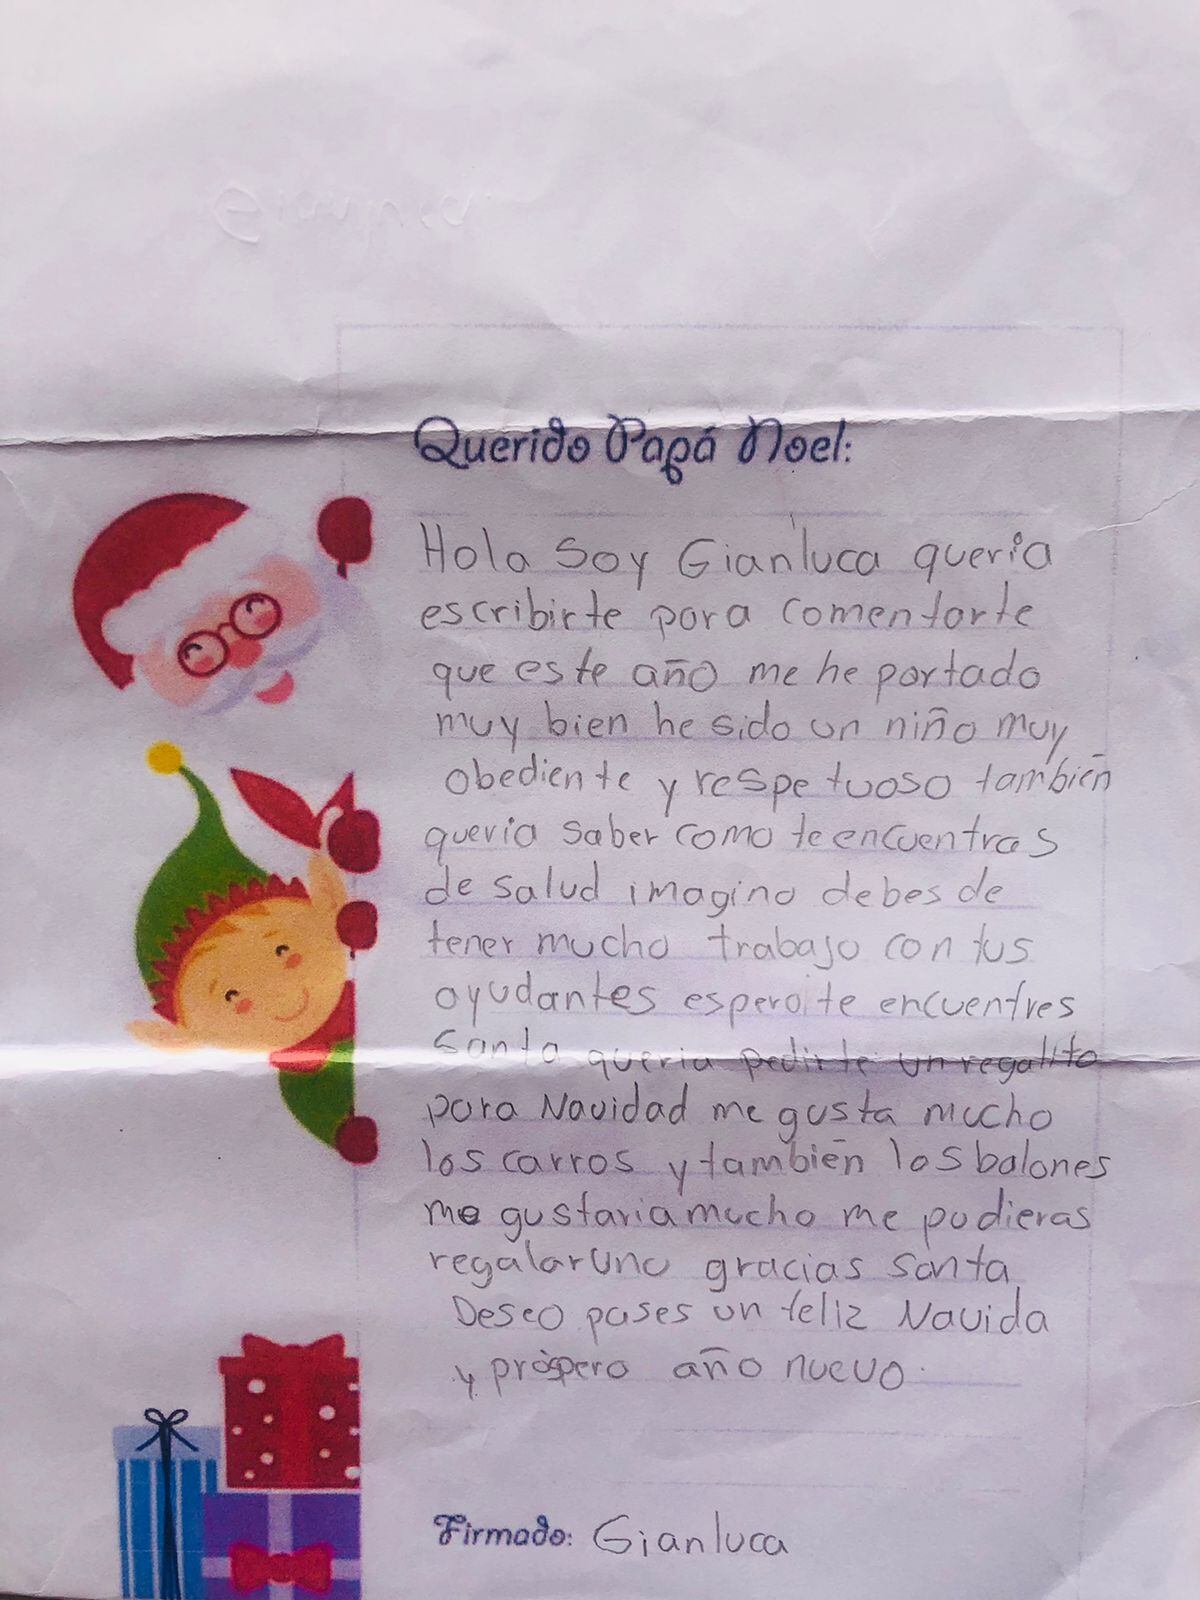 Querido Papá Noel:
Hola Soy Gianluca queria
escribirte para comentarte
que este año me he portado
muy bien he sido un niño muy
obediente y respetuoso también
queria saber como te encuentras
de salud imagino debes de
tener mucho trabajo con tus
ayudantes espero te encuentres
Santa queria pedirte un regalito
para Navidad me gusta mucho
los carros y también los balones
me gustaria mucho me pudieras
regalar uno gracias Santa
Deseo pases un feliz Navida
y próspero año nuevo.
Firmado: Gianluca